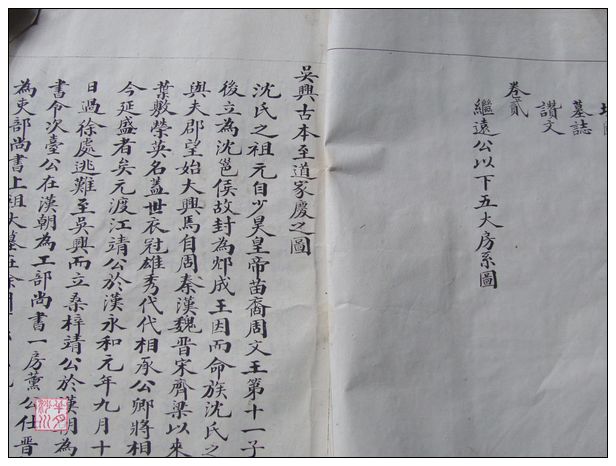 墓誌
讚文
卷貳
繼遠公以下五大房系圖
吳興古本至道家慶之圖
沈氏之祖元自少昊皇帝苗裔周文王第十一子
後立為沈邕侯故封為郕成王因而命族沈氏之
與夫郡望始大興焉自周秦漢魏晋宋齊梁以來
葉數榮英名蓋世衣冠雄秀代代相承公卿將相
今延盛者矣元渡江靖公於漢永和元年九月十
日過徐處逃難至吳興而立桑梓靖公於漢朝為
書令次臺公在漢朝為工部尚書一房薰公仕晋
為吏部尚書上祖大墓在